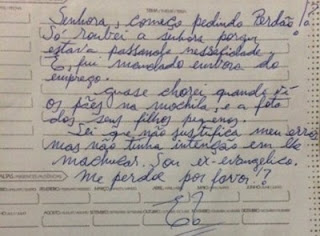 Senhora, começo pedindo Perdão!
Só roubei a senhora porque
estava passando nessesidade
E, fui mandado embora do
emprego.
quase chorei quando vi
os pães na mochila, e a foto
dos seus filhos pequenos.
Sei que não sustifica meu erro
mas não tinha intenção em lhe
machucar. Sou ex-evangelico.
Me perdoe por favor!?